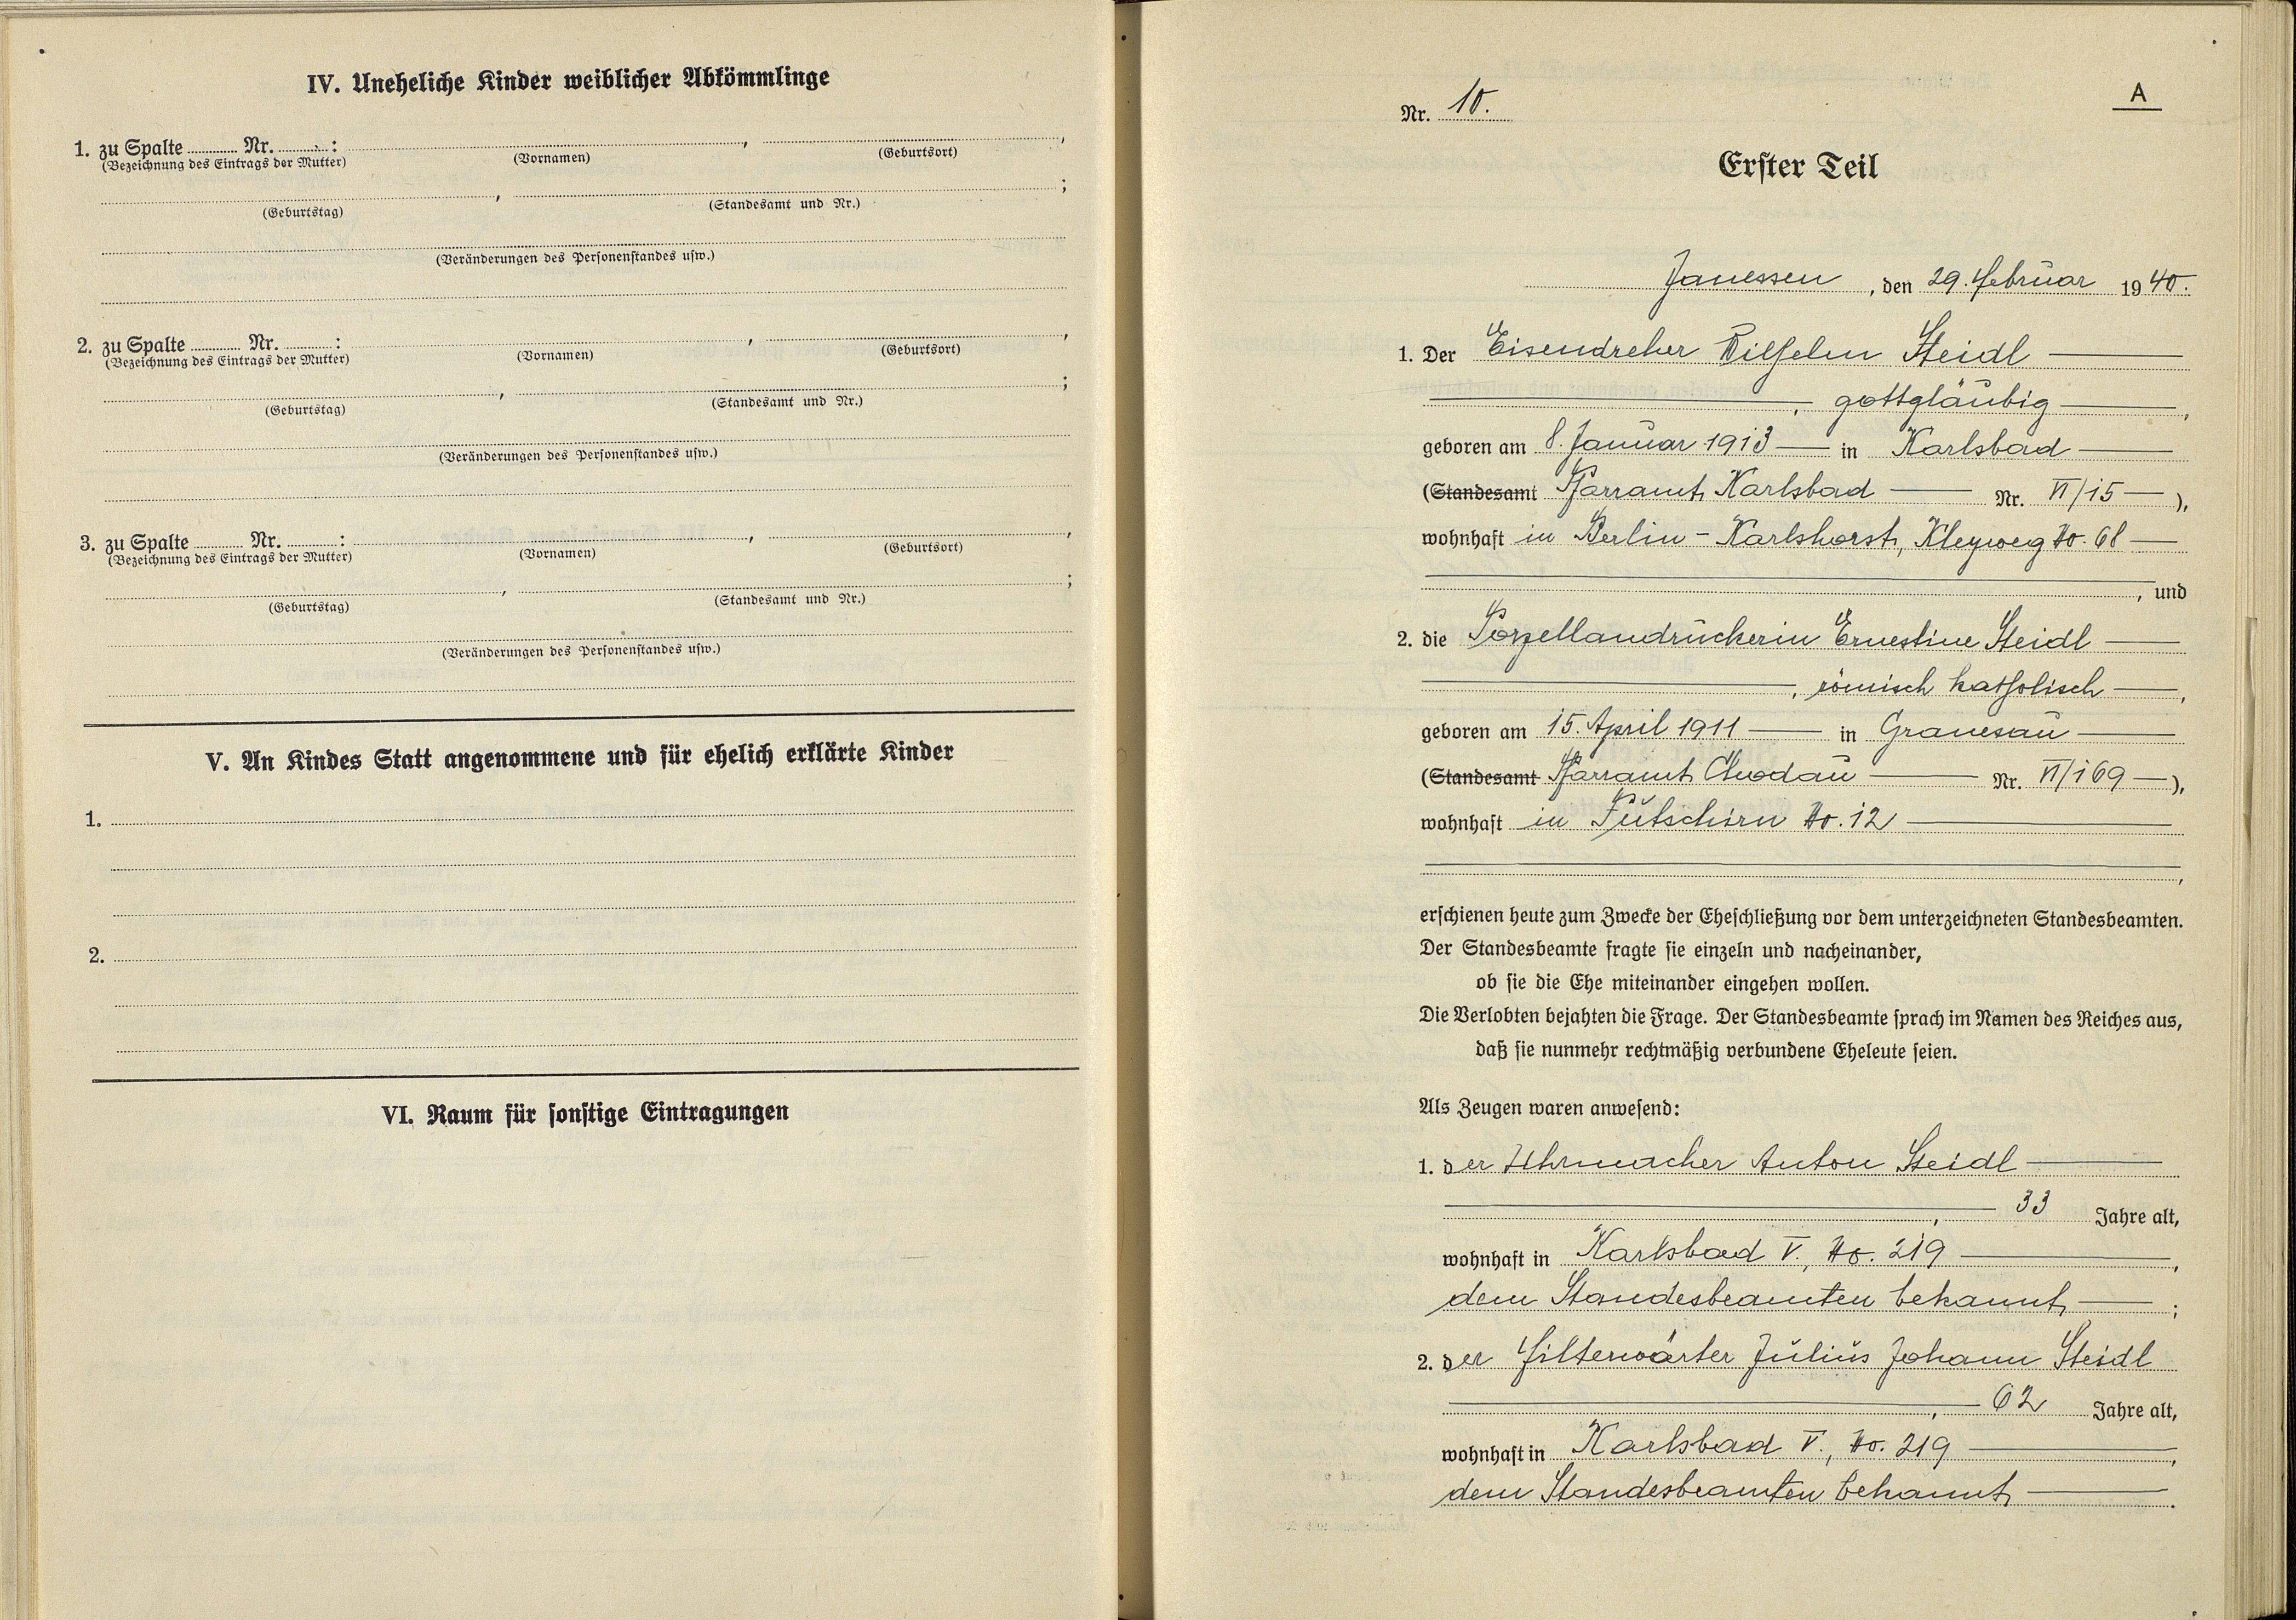 IV. Uneheliche Kinder weiblicher Abkömmlinge
1. zu Spalte ........ Nr. ........ : ........ , ........ ,
(Bezeichnung des Eintrags der Mutter) (Vornamen) (Geburtsort)
........ , ........ ;
(Geburtstag) (Standesamt und Nr.)
(Veränderungen des Personenstandes usw.)
2. zu Spalte ........ Nr. ........ : ........ , ........ ,
(Bezeichnung des Eintrags der Mutter) (Vornamen) (Geburtsort)
........ , ........ ;
(Geburtstag) (Standesamt und Nr.)
(Veränderungen des Personenstandes usw.)
3. zu Spalte ........ Nr. ........ : ........ , ........ ,
(Bezeichnung des Eintrags der Mutter) (Vornamen) (Geburtsort)
........ , ........ ;
(Geburtstag) (Standesamt und Nr.)
(Veränderungen des Personenstandes usw.)
V. An Kindes Statt angenommene und für ehelich erklärte Kinder
1.
2.
VI. Raum für sonstige Eintragungen
A
Nr. 10.
Erster Teil
Janessen, den 29. Februar 1940.
1. Der Eisendreher Wilhelm Steidl
, gottgläubig ,
geboren am 8. Januar 1913 in Karlsbad
(Standesamt Pfarramt Karlsbad Nr. VI/15),
wohnhaft in Berlin-Karlshorst, Kleyweg No. 68
, und
2. die Porzellandruckerin Ernestine Steidl
, römisch katholisch ,
geboren am 15. April 1911 in Granesau
(Standesamt Pfarramt Chodau Nr. VI/169),
wohnhaft in Putschirn No. 12
,
erschienen heute zum Zwecke der Eheschließung vor dem unterzeichneten Standesbeamten.
Der Standesbeamte fragte sie einzeln und nacheinander,
ob sie die Ehe miteinander eingehen wollen.
Die Verlobten bejahten die Frage. Der Standesbeamte sprach im Namen des Reiches aus,
daß sie nunmehr rechtmäßig verbundene Eheleute seien.
Als Zeugen waren anwesend:
1. der Uhrmacher Anton Steidl
, 33 Jahre alt,
wohnhaft in Karlsbad V., No. 219 ,
dem Standesbeamten bekannt ;
2. der Filterwärter Julius Johann Steidl
, 62 Jahre alt,
wohnhaft in Karlsbad V., No. 219 ,
dem Standesbeamten bekannt .